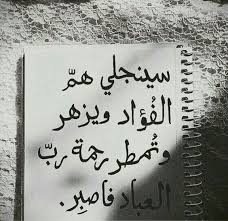 سينجلي همّ
الفُؤاد ويزهر
وتُمطر رحمة ربّ
العباد فاصبِر.